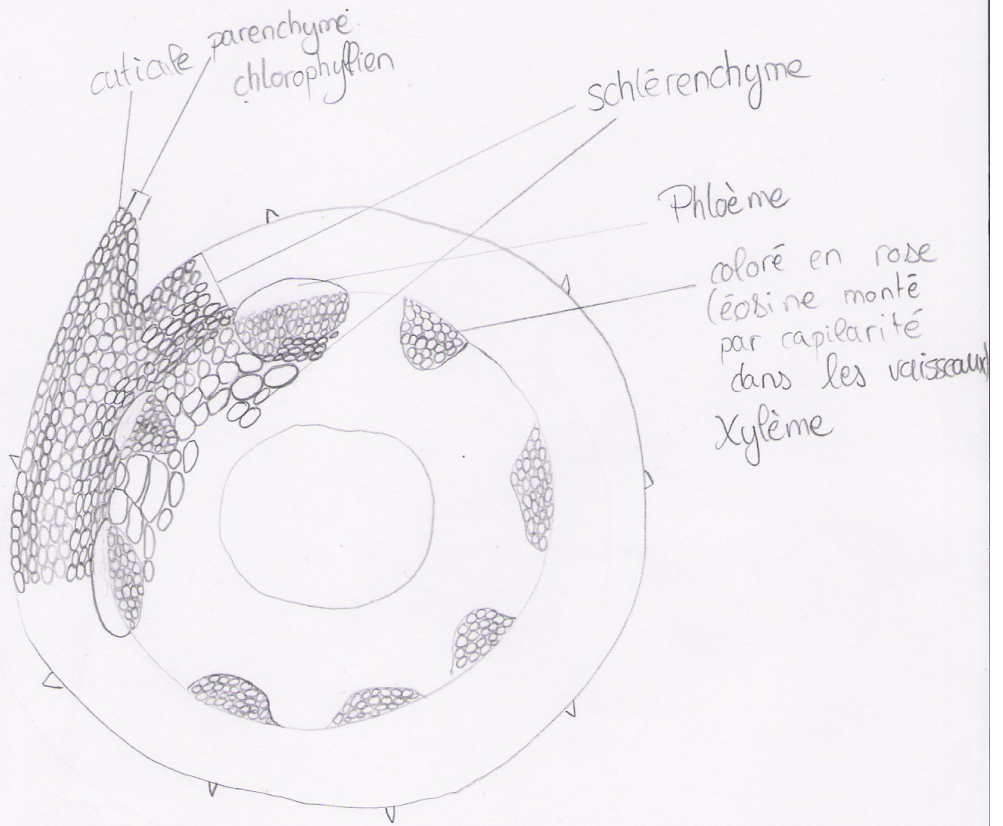 cuticule
parenchyme
chlorophyllien
schlérenchyme
Phloème
coloré en rose
(éosine monté
par capilarité
dans les vaisseaux)
Xylème